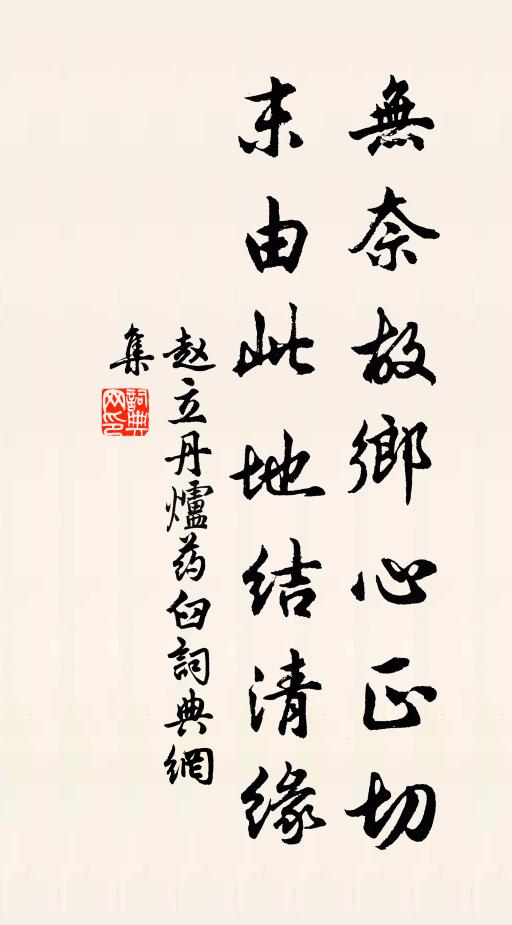 無奈故鄉心正切
末由此地结清緣
赵立丹爐药臼詞典網
集
詞典
网印